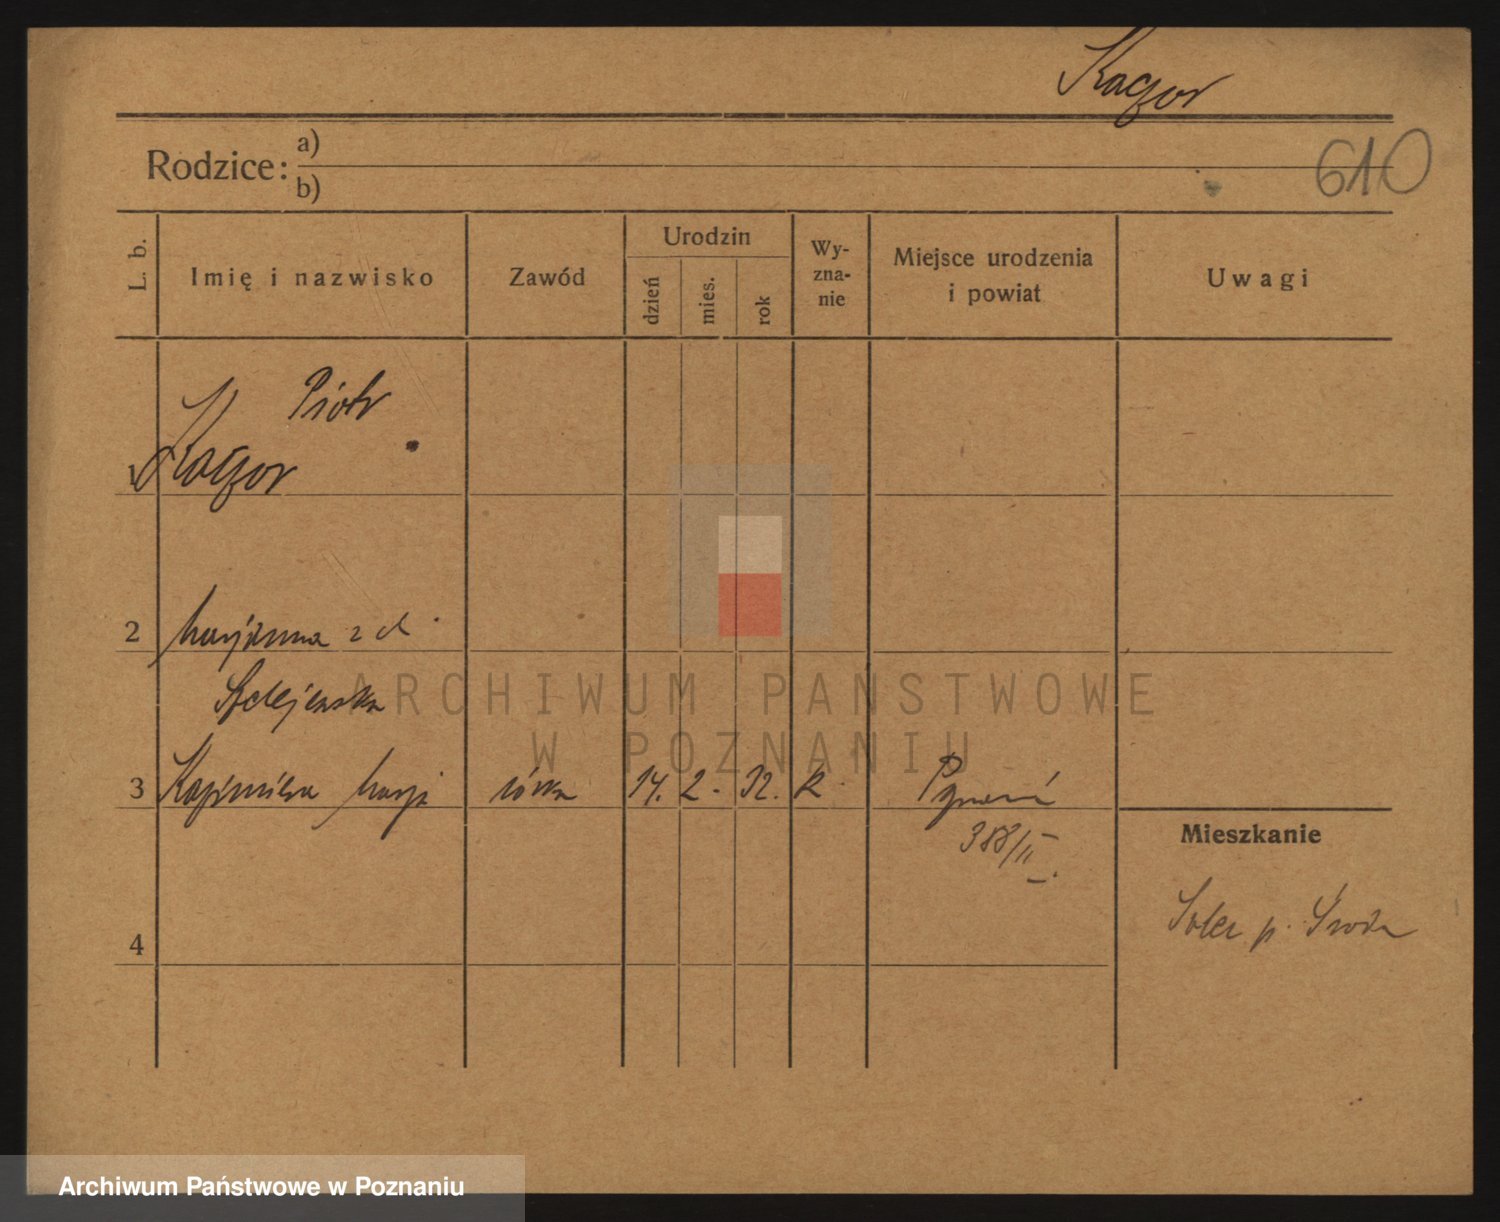 Kaczor
610
Rodzice: a)
b)
L. b.
Imię i nazwisko
Zawód
Urodzin
dzień
mies.
rok
Wy-
zna-
nie
Miejsce urodzenia
i powiat
Uwagi
Piotr
1 Kaczor
2 Marjanna z d.
3 Kazimiera Marja córka 14. 2. 32. k Poznań
388/II
Mieszkanie
Solec p. Środa
4
ARCHIWUM PAŃSTWOWE
W POZNANIU
Archiwum Państwowe w Poznaniu